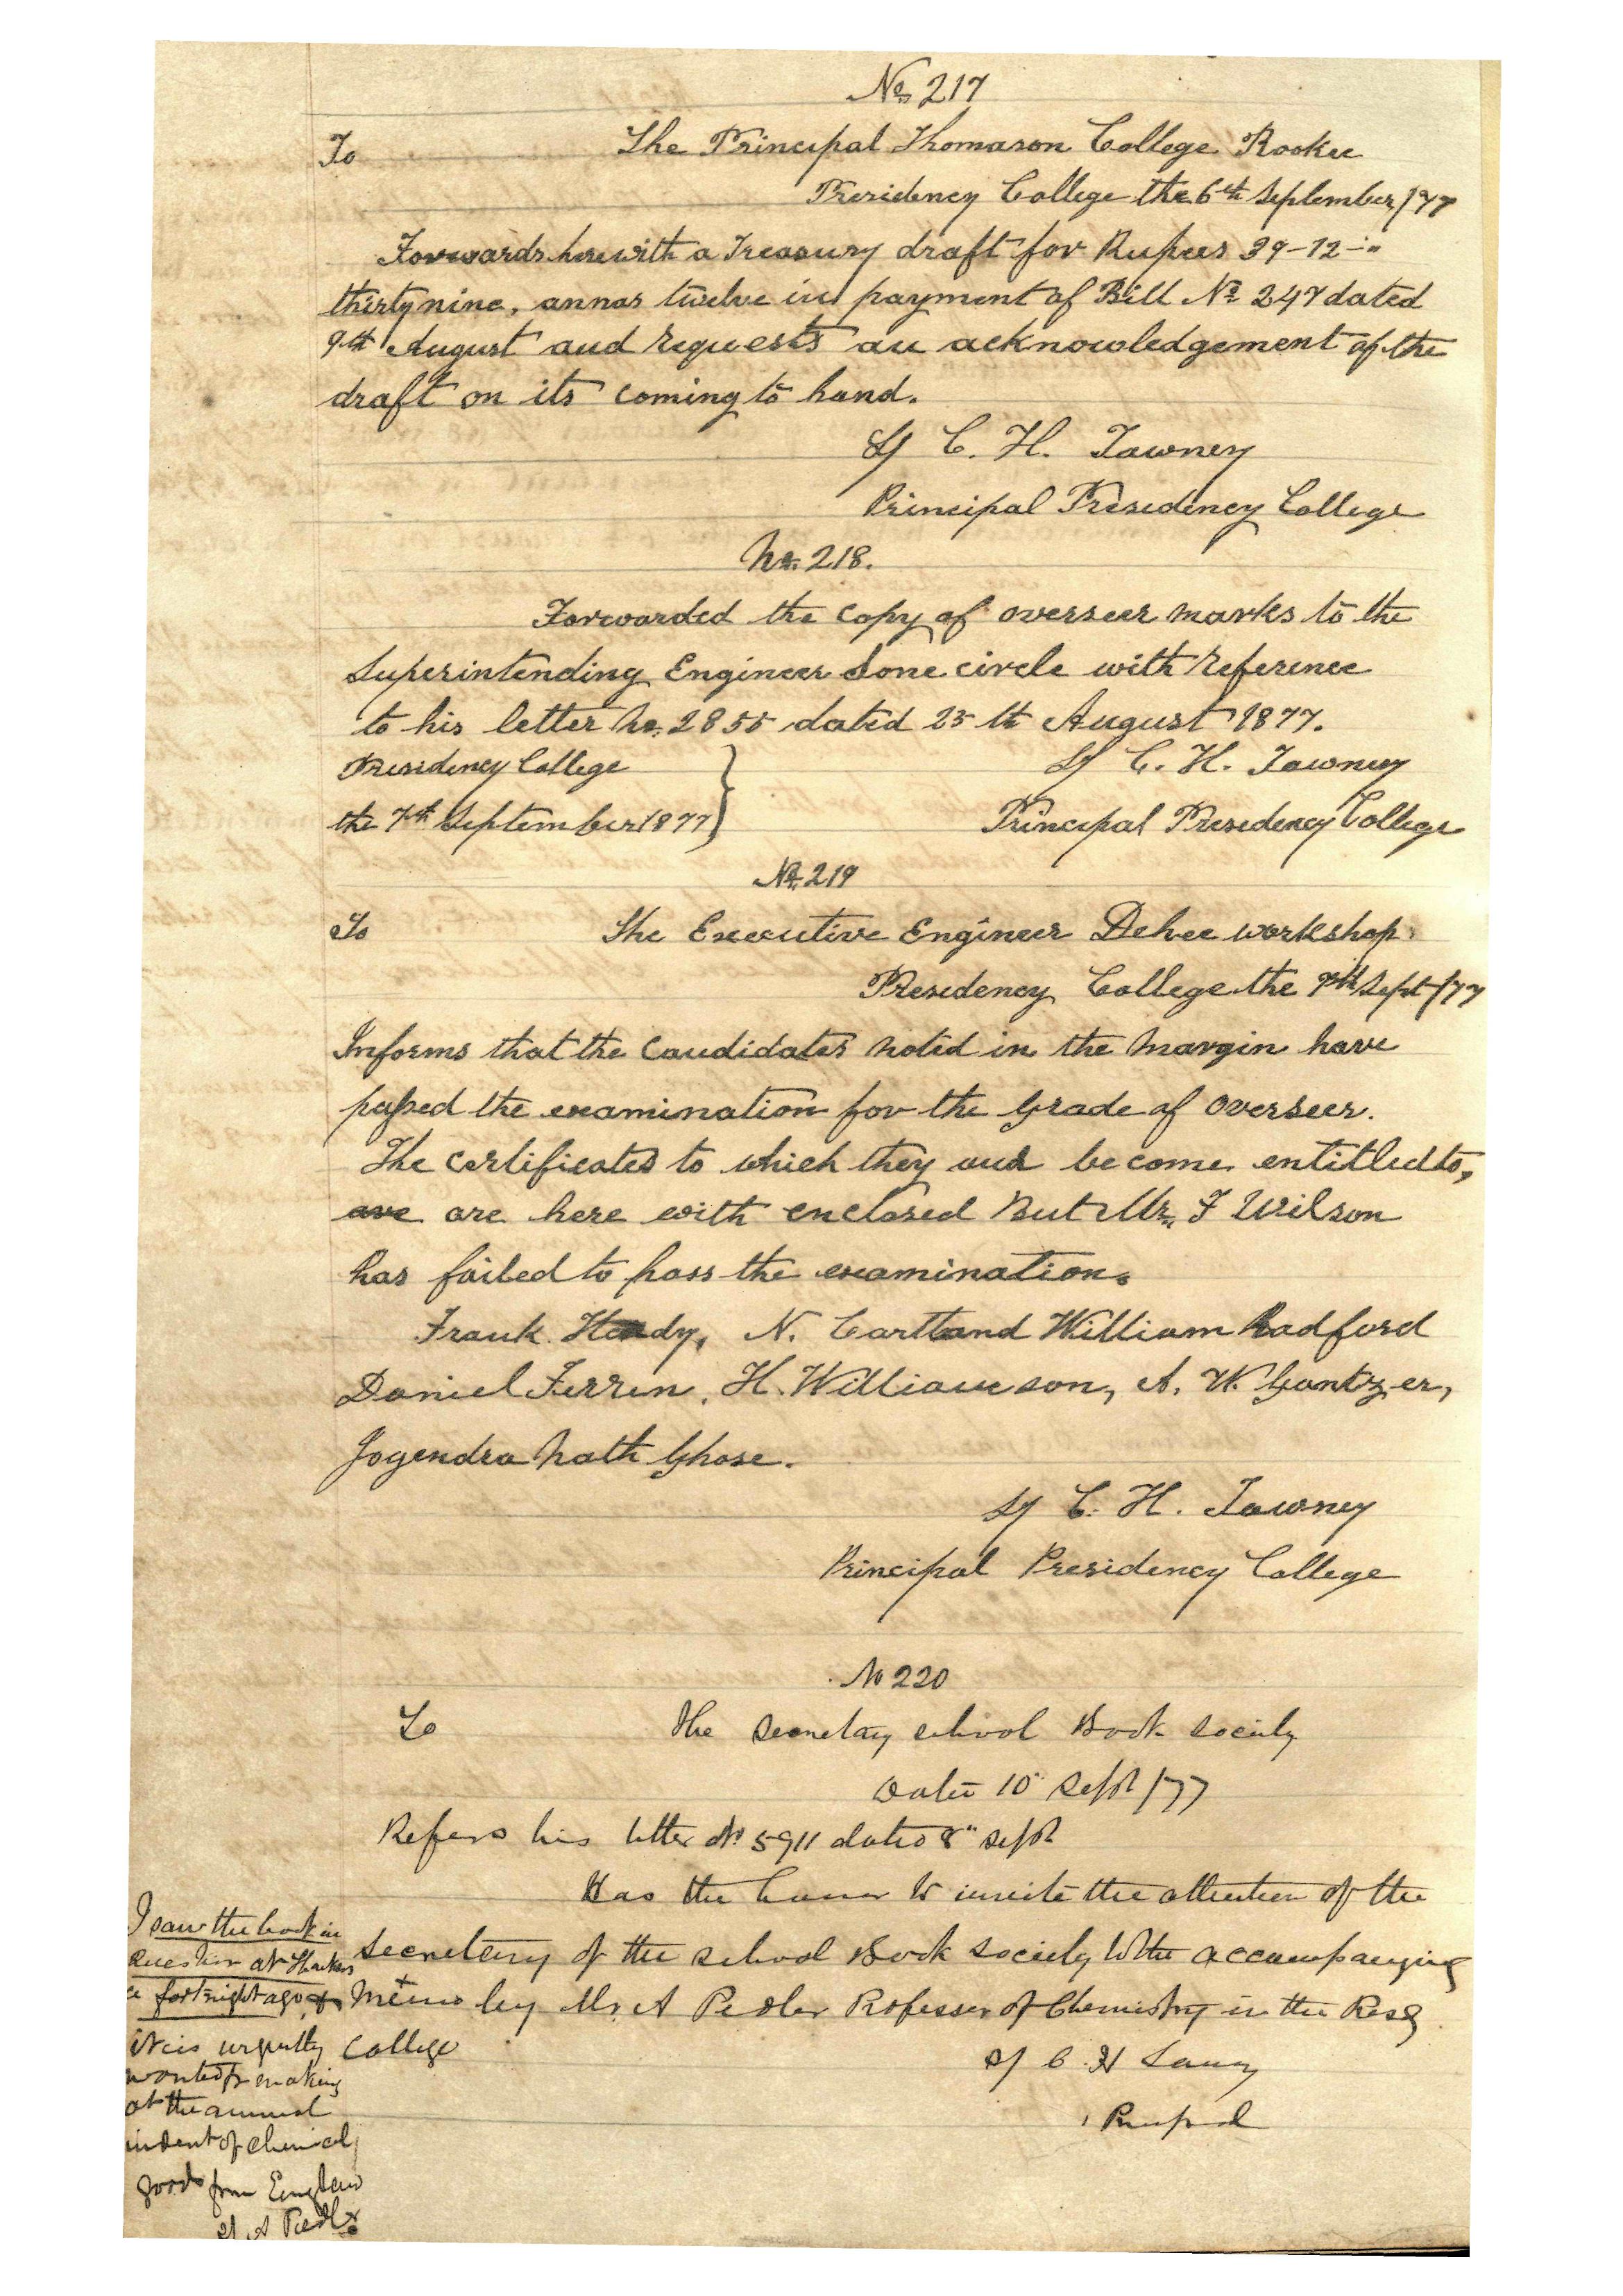 No. 217
To The Principal Thomason College Rookee
Presidency College the 6th September/77
Forwards herewith a Treasury draft for Rupees 39-12-"
thirtynine, annas twelve in payment of Bill No. 247 dated
9th August and requests an acknowledgement of the
draft on its coming to hand.
Sd C. H. Tawney
Principal Presidency College
No. 218.
Forwarded the copy of overseer marks to the
Superintending Engineer Sone circle with reference
to his letter No. 2855 dated 25th August 1877.
Presidency College
the 7th September 1877
Sd C. H. Tawney
Principal Presidency College
No. 219
To The Executive Engineer Dehee workshop.
Presidency College the 7th Sept/77
Informs that the candidates noted in the margin have
passed the examination for the Grade of overseer.
The certificates to which they have become entitled to,
are are here with enclosed But Mr. F Wilson
has failed to pass the examination.
Frank Hardy, N. Cartland William Radford
Daniel Ferren, H. Williamson, A. W. Gantzer,
Jogendra Nath Ghose.
Sd C. H. Tawney
Principal Presidency College
No 220
To The Secretary School Book Society
Dated 10" Sept/77
Refers his letter No 5911 dated 8" Sept
Has the honor to invite the attention of the
Secretary of the School Book Society to the accompanying
memo by Mr. A Pedler Professor of Chemistry in the Presy
College
Sd C. H Tawney
Principal
I saw the book in
question at Thackers
a fortnight ago, &
it is urgently
wanted for making
out the annual
indent of chemical
goods from England
Sd A Pedler